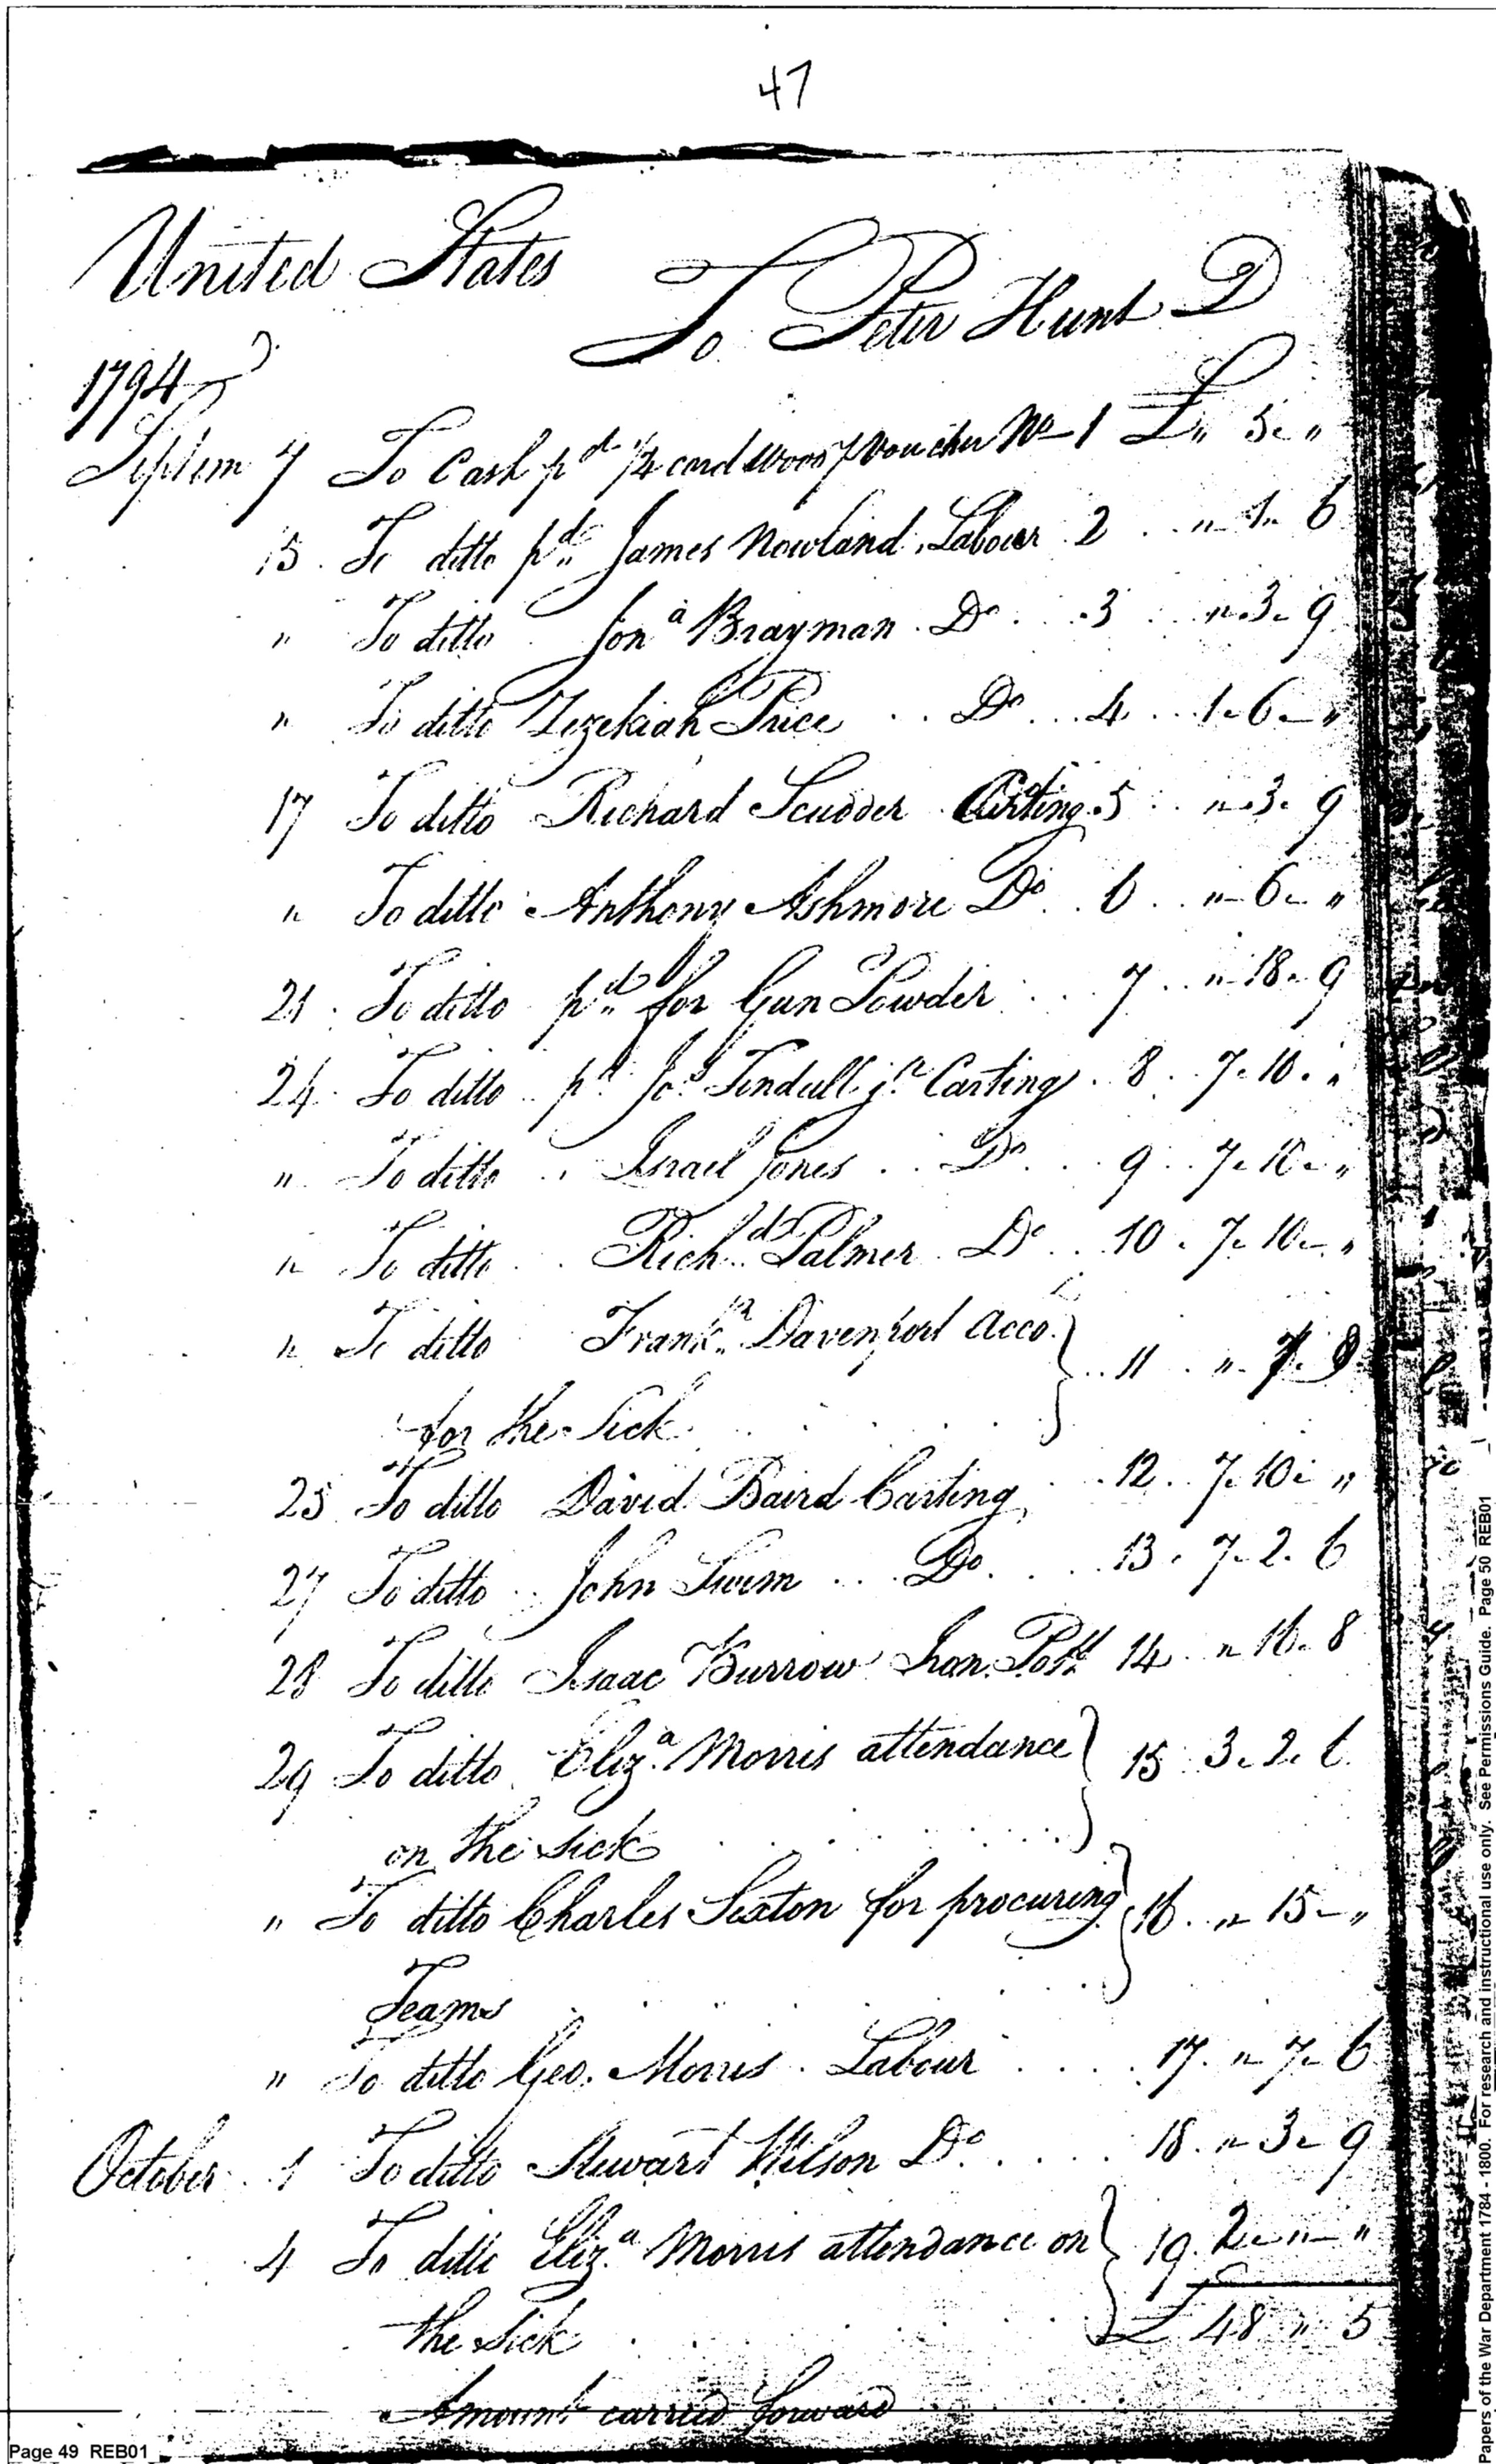 47
United States
To Peter Hunt D
1794
Septem 7 To Cash pd 1/4 cord wood p voucher No 1 £ " 5 " "
15 To ditto pd James Nowland Labour 2 " 1 " 6
" To ditto Jona Brayman Do 3 " 3 " 9
" To ditto Hezekiah Price Do 4 1 " 6 " "
17 To ditto Richard Scudder Carting 5 " 3 " 9
" To ditto Anthony Ashmore Do 6 " 6 " "
21 To ditto pd for Gun Powder 7 " 18 " 9
24 To ditto pd Jos Tindall jr Carting 8 7 " 10 " "
" To ditto Israel Jones Do 9 7 " 10 " "
" To ditto Richd Palmer Do 10 7 " 10 " "
" To ditto Frankn Davenport acco
for the Sick 11 " 7 "
25 To ditto David Baird Carting 12 7 " 10 " "
27 To ditto John Swem Do 13 7 " 2 " 6
28 To ditto Isaac Burrow Iron Pott 14 " 16 " 8
29 To ditto Eliza Morris attendance
on the sick 15 3 " 2 " 6
" To ditto Charles Sexton for procuring
Teams 16 " 15 " "
" To ditto Geo. Morris Labour 17 " 7 " 6
October 1 To ditto Stewart Wilson Do 18 " 3 " 9
4 To ditto Eliza Morris attendance on
the sick 19 2 " " " "
£ 48 " 5
Amount carried forward
Page 49 REB01
Papers of the War Department 1784 - 1800. For research and instructional use only. See Permissions Guide. Page 50 REB01